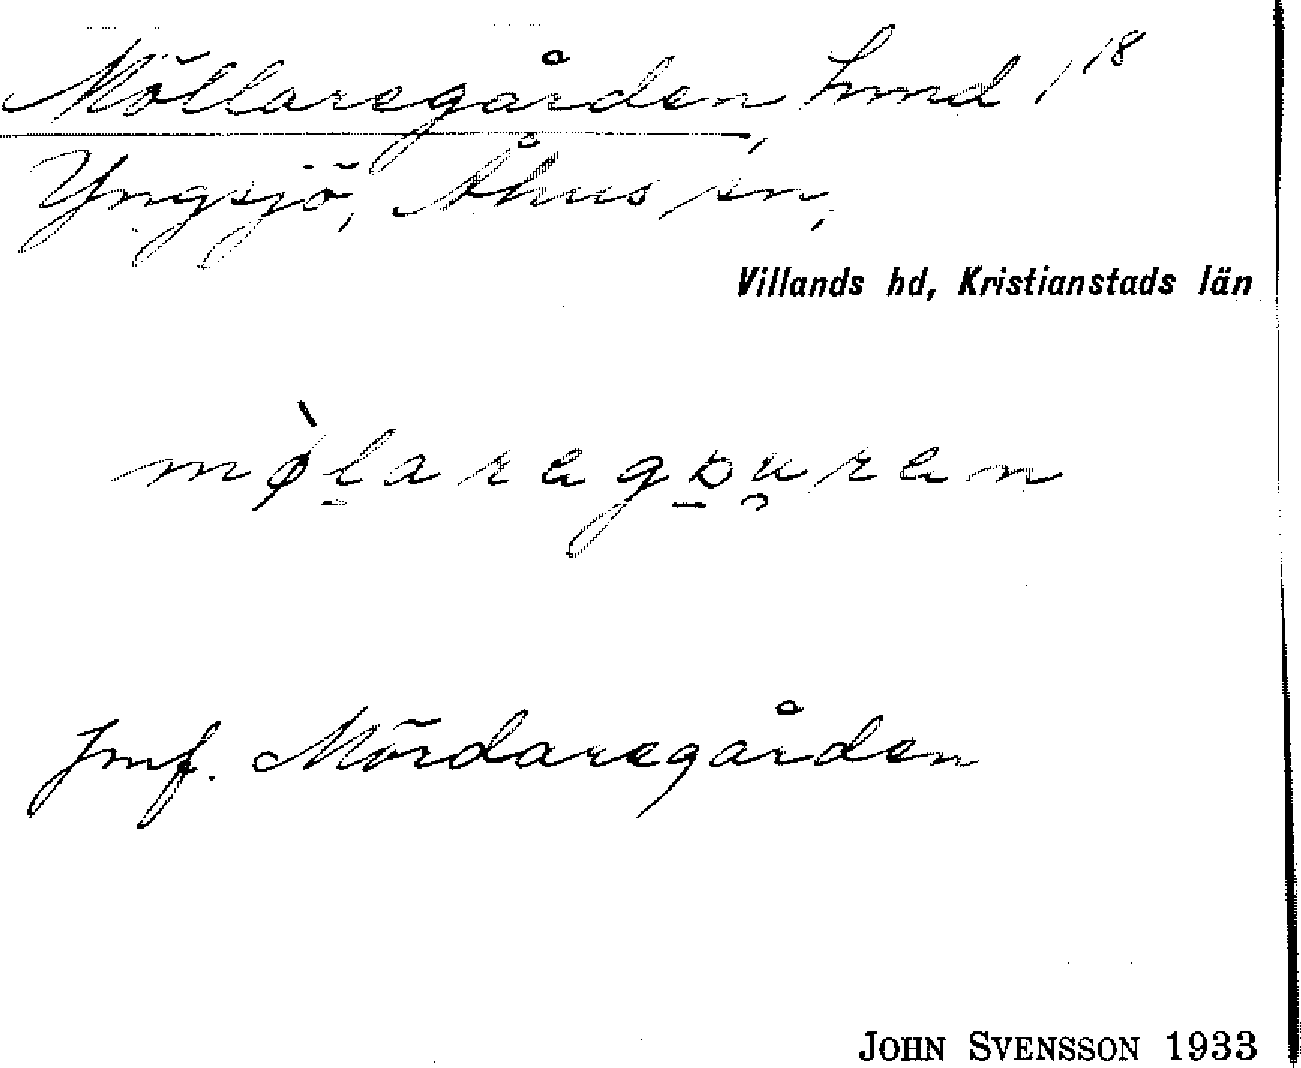 Möllaregården, Lund 1¹⁸
Yngsjö, Åhus sn,
Villands hd, Kristianstads län
mø̀l̠aragɒ̠u̯ran
Jmf. Mördaregården
JOHN SVENSSON 1933